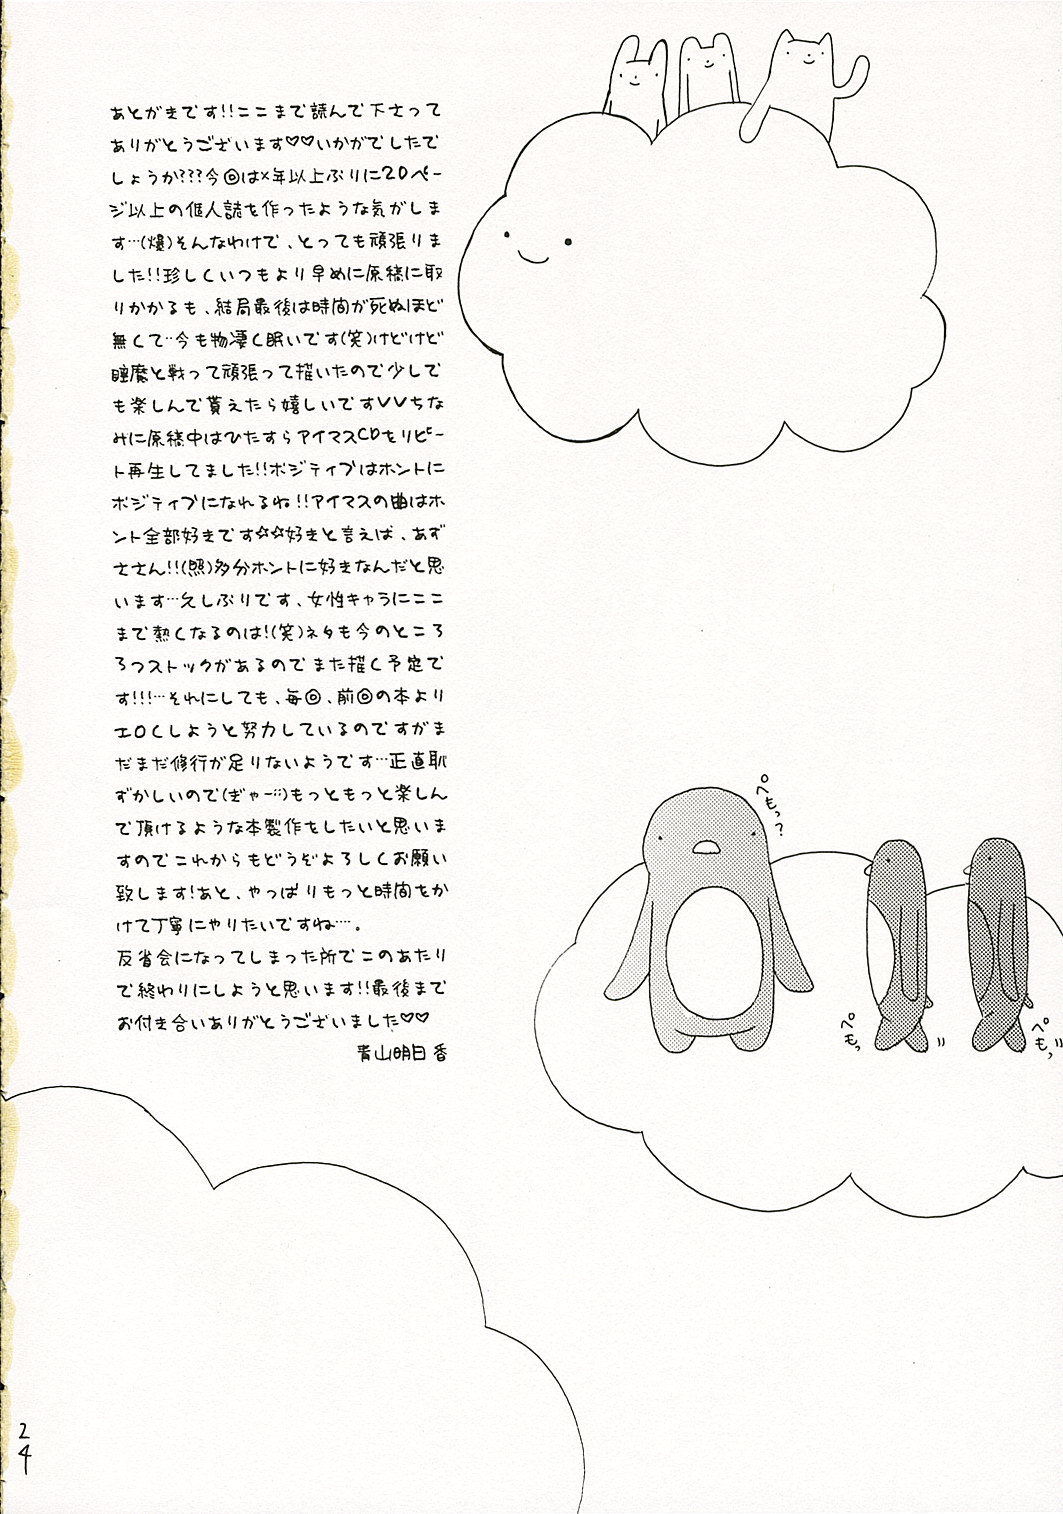 あとがきです!!ここまで読んで下さって
ありがとうございます♡♡いかがでしたで
しょうか???今回は×年以上ぶりに20ペー
ジ以上の個人誌を作ったような気がしま
す…(爆)そんなわけで、とっても頑張りま
した!!珍しくいつもより早めに原稿に取
りかかるも、結局最後は時間が死ぬほど
無くて…今も物凄く眠いです(笑)けどけど
睡魔と戦って頑張って描いたので少しで
も楽しんで貰えたら嬉しいですVVちな
みに原稿中はひたすらアイマスCDをリピー
ト再生してました!!ポジティブはホントに
ポジティブになれるね!!アイマスの曲はホ
ント全部好きです☆☆好きと言えば、あず
ささん!!(照)多分ホントに好きなんだと思
います…久しぶりです、女性キャラにここ
まで熱くなるのは!(笑)ネタも今のところ
3つストックがあるのでまた描く予定で
す!!!…それにしても、毎回、前回の本より
エロくしようと努力しているのですがま
だまだ修行が足りないようです…正直恥
ずかしいので(ぎゃー…)もっともっと楽しん
で頂けるような本製作をしたいと思いま
すのでこれからもどうぞよろしくお願い
致します!あと、やっぱりもっと時間をか
けて丁寧にやりたいですね…。
反省会になってしまった所でこのあたり
で終わりにしようと思います!!最後まで
お付き合いありがとうございました♡♡
青山明日香
ぺもっ?
ぺもっ
ぺもっ
24